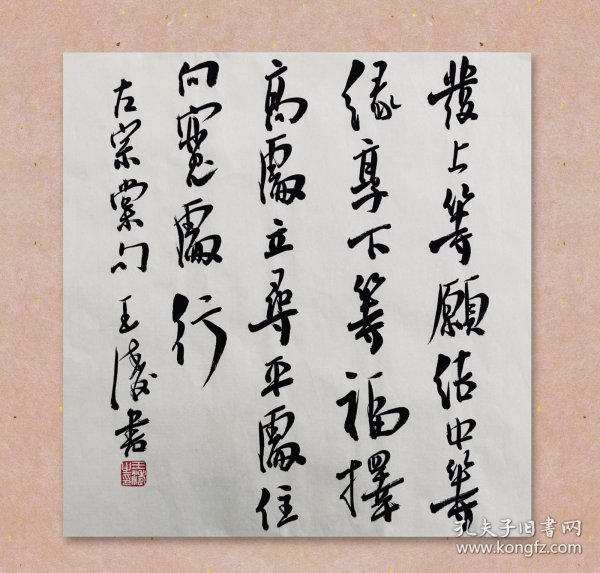 發上等願结中等
缘享下等福擇
高處立尋平處住
向寬處行
左宗棠句 王 書
孔夫子旧书网
www.kongfz.com